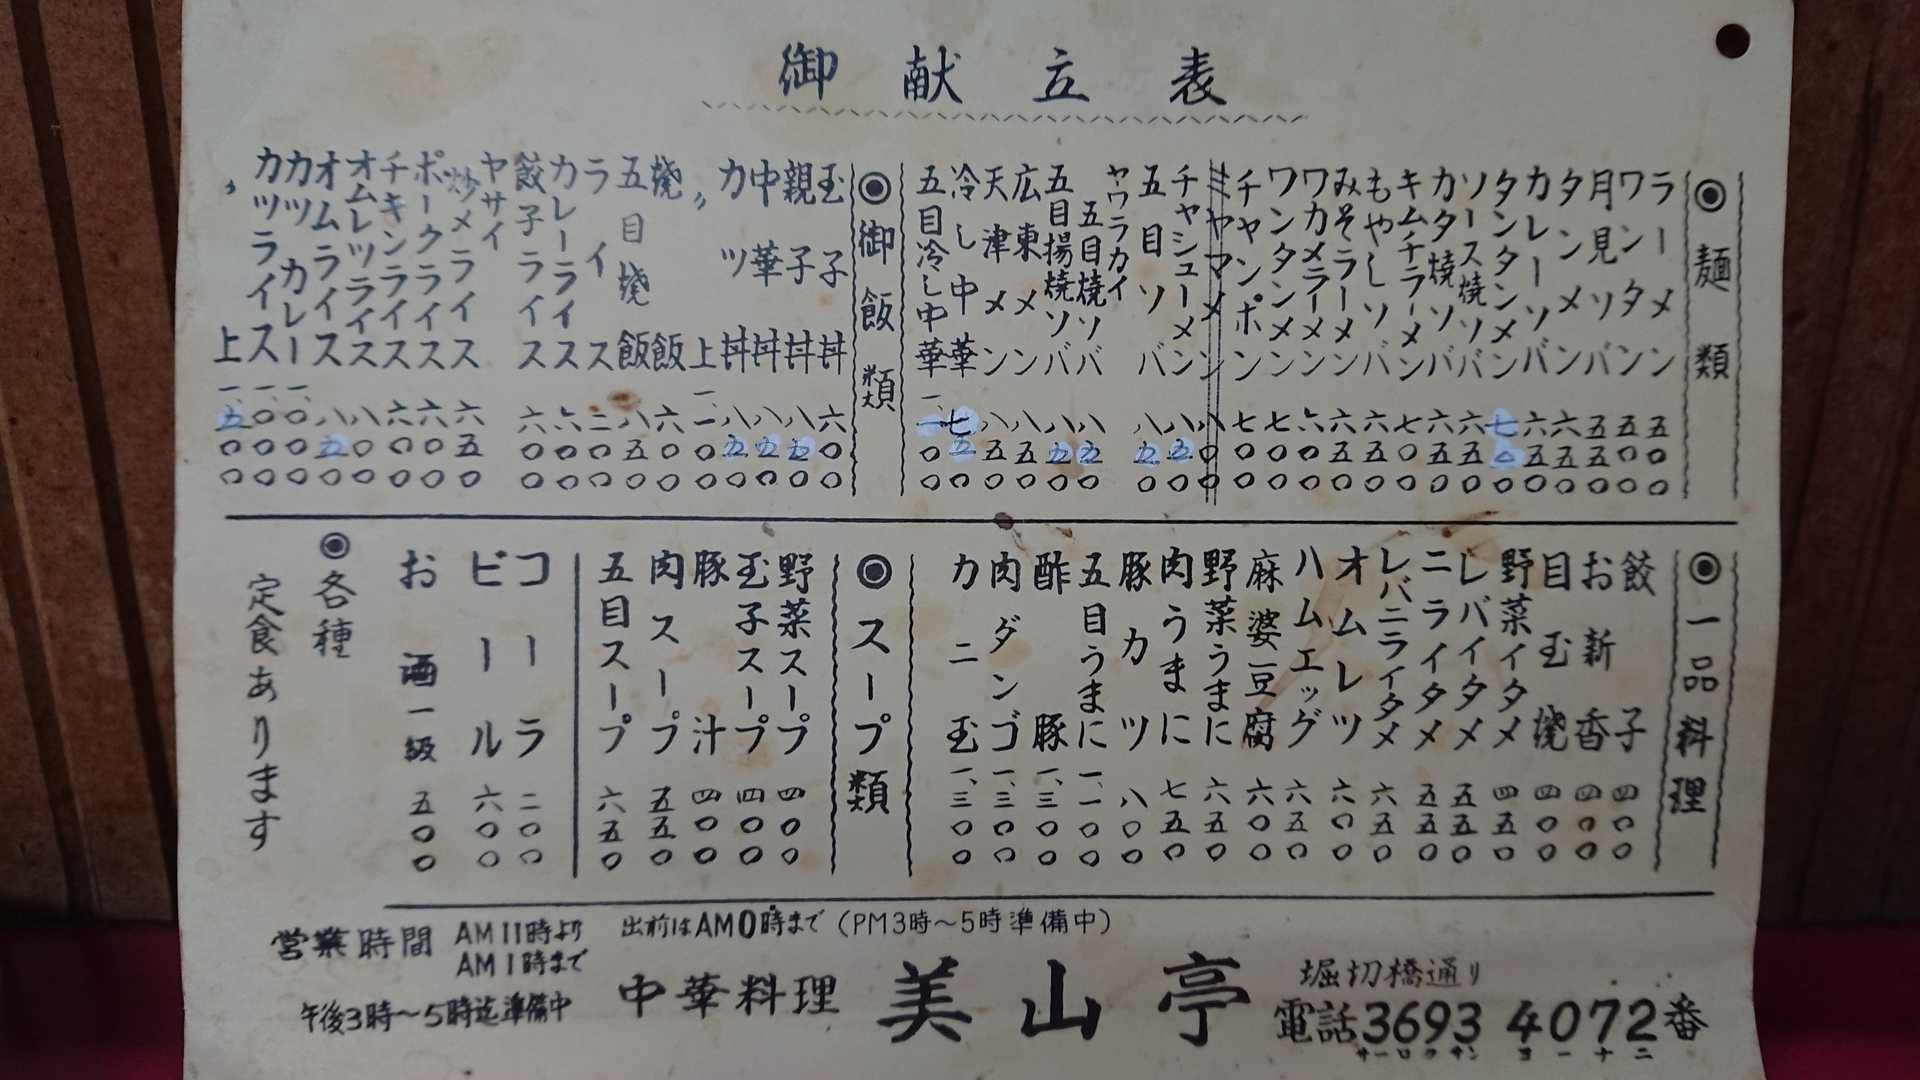 御献立表
◉麺類
ラーメン 五〇〇
ワンタン 五〇〇
月見ソバ 五五〇
タンメン 六五〇
カレーソバ 六五〇
タンタンメン 七〇〇
ソース焼ソバ 六五〇
カタ焼ソバ 六五〇
キムチラーメン 七〇〇
もやしソバ 六五〇
みそラーメン 六五〇
ワカメラーメン 六〇〇
ワンタンメン 七〇〇
チャンポン 七〇〇
ミヤマメン 八〇〇
チャシューメン 八五〇
五目ソバ 八五〇
ヤワラカイ
五目焼ソバ 八五〇
五目揚焼ソバ 八五〇
広東メン 八五〇
天津メン 八五〇
冷し中華 七五〇
五目冷し中華 一、一〇〇
◉御飯類
玉子丼 六〇〇
親子丼 八五〇
中華丼 八五〇
カツ丼 八五〇
〃上 一、一〇〇
焼飯 六〇〇
五目焼飯 八五〇
ライス 二〇〇
カレーライス 六〇〇
餃子ライス 六〇〇
ヤサイ
炒メライス 六五〇
ポークライス 六〇〇
チキンライス 六〇〇
オムレツライス 八〇〇
オムライス 八五〇
カツカレー 一、〇〇〇
カツライス 一、〇〇〇
〃上 一、五〇〇
◉一品料理
餃子 四〇〇
お新香 四〇〇
目玉焼 四〇〇
野菜イタメ 四五〇
レバイタメ 五五〇
ニライタメ 五五〇
レバニライタメ 六五〇
オムレツ 六〇〇
ハムエッグ 六五〇
麻婆豆腐 六〇〇
野菜うまに 六五〇
肉うまに 七五〇
豚カツ 八〇〇
五目うまに 一、一〇〇
酢豚 一、三〇〇
肉ダンゴ 一、三〇〇
カニ玉 一、三〇〇
◉スープ類
野菜スープ 四〇〇
玉子スープ 四〇〇
豚汁 四〇〇
肉スープ 五五〇
五目スープ 六五〇
コーラ 二〇〇
ビール 六〇〇
お酒一級 五〇〇
◉各種
定食あります
営業時間 AM11時より
AM1時まで
午後3時〜5時迄準備中
出前はAM0時まで(PM3時〜5時準備中)
中華料理 美山亭
堀切橋通り
電話3693 4072番
サーロクサン ヨーナニ